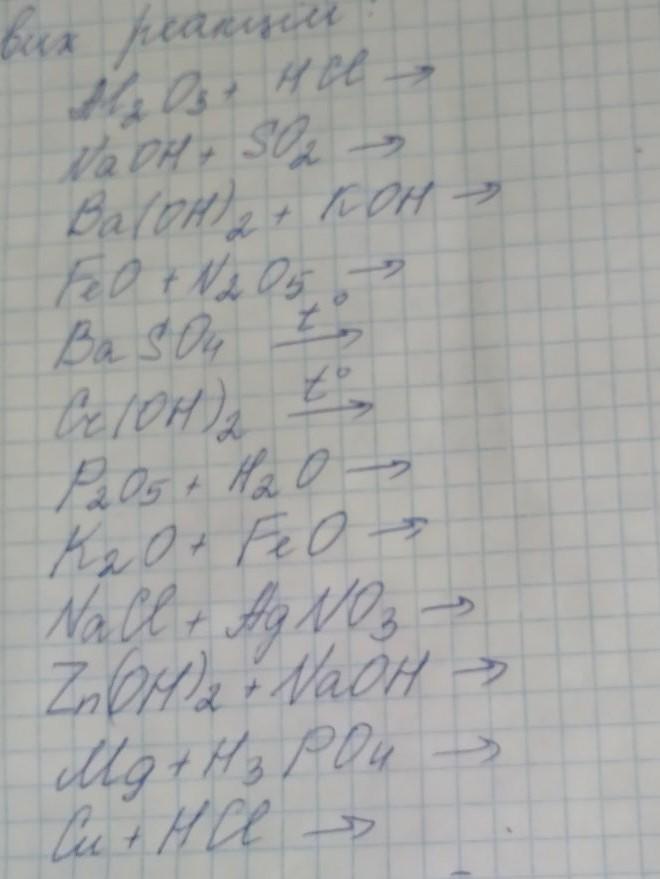 вих реакцій:
Al₂O₃ + HCl →
NaOH + SO₂ →
Ba(OH)₂ + KOH →
FeO + N₂O₅ →
BaSO₄ t° →
Cr(OH)₂ t° →
P₂O₅ + H₂O →
K₂O + FeO →
NaCl + AgNO₃ →
Zn(OH)₂ + NaOH →
Mg + H₃PO₄ →
Cu + HCl →